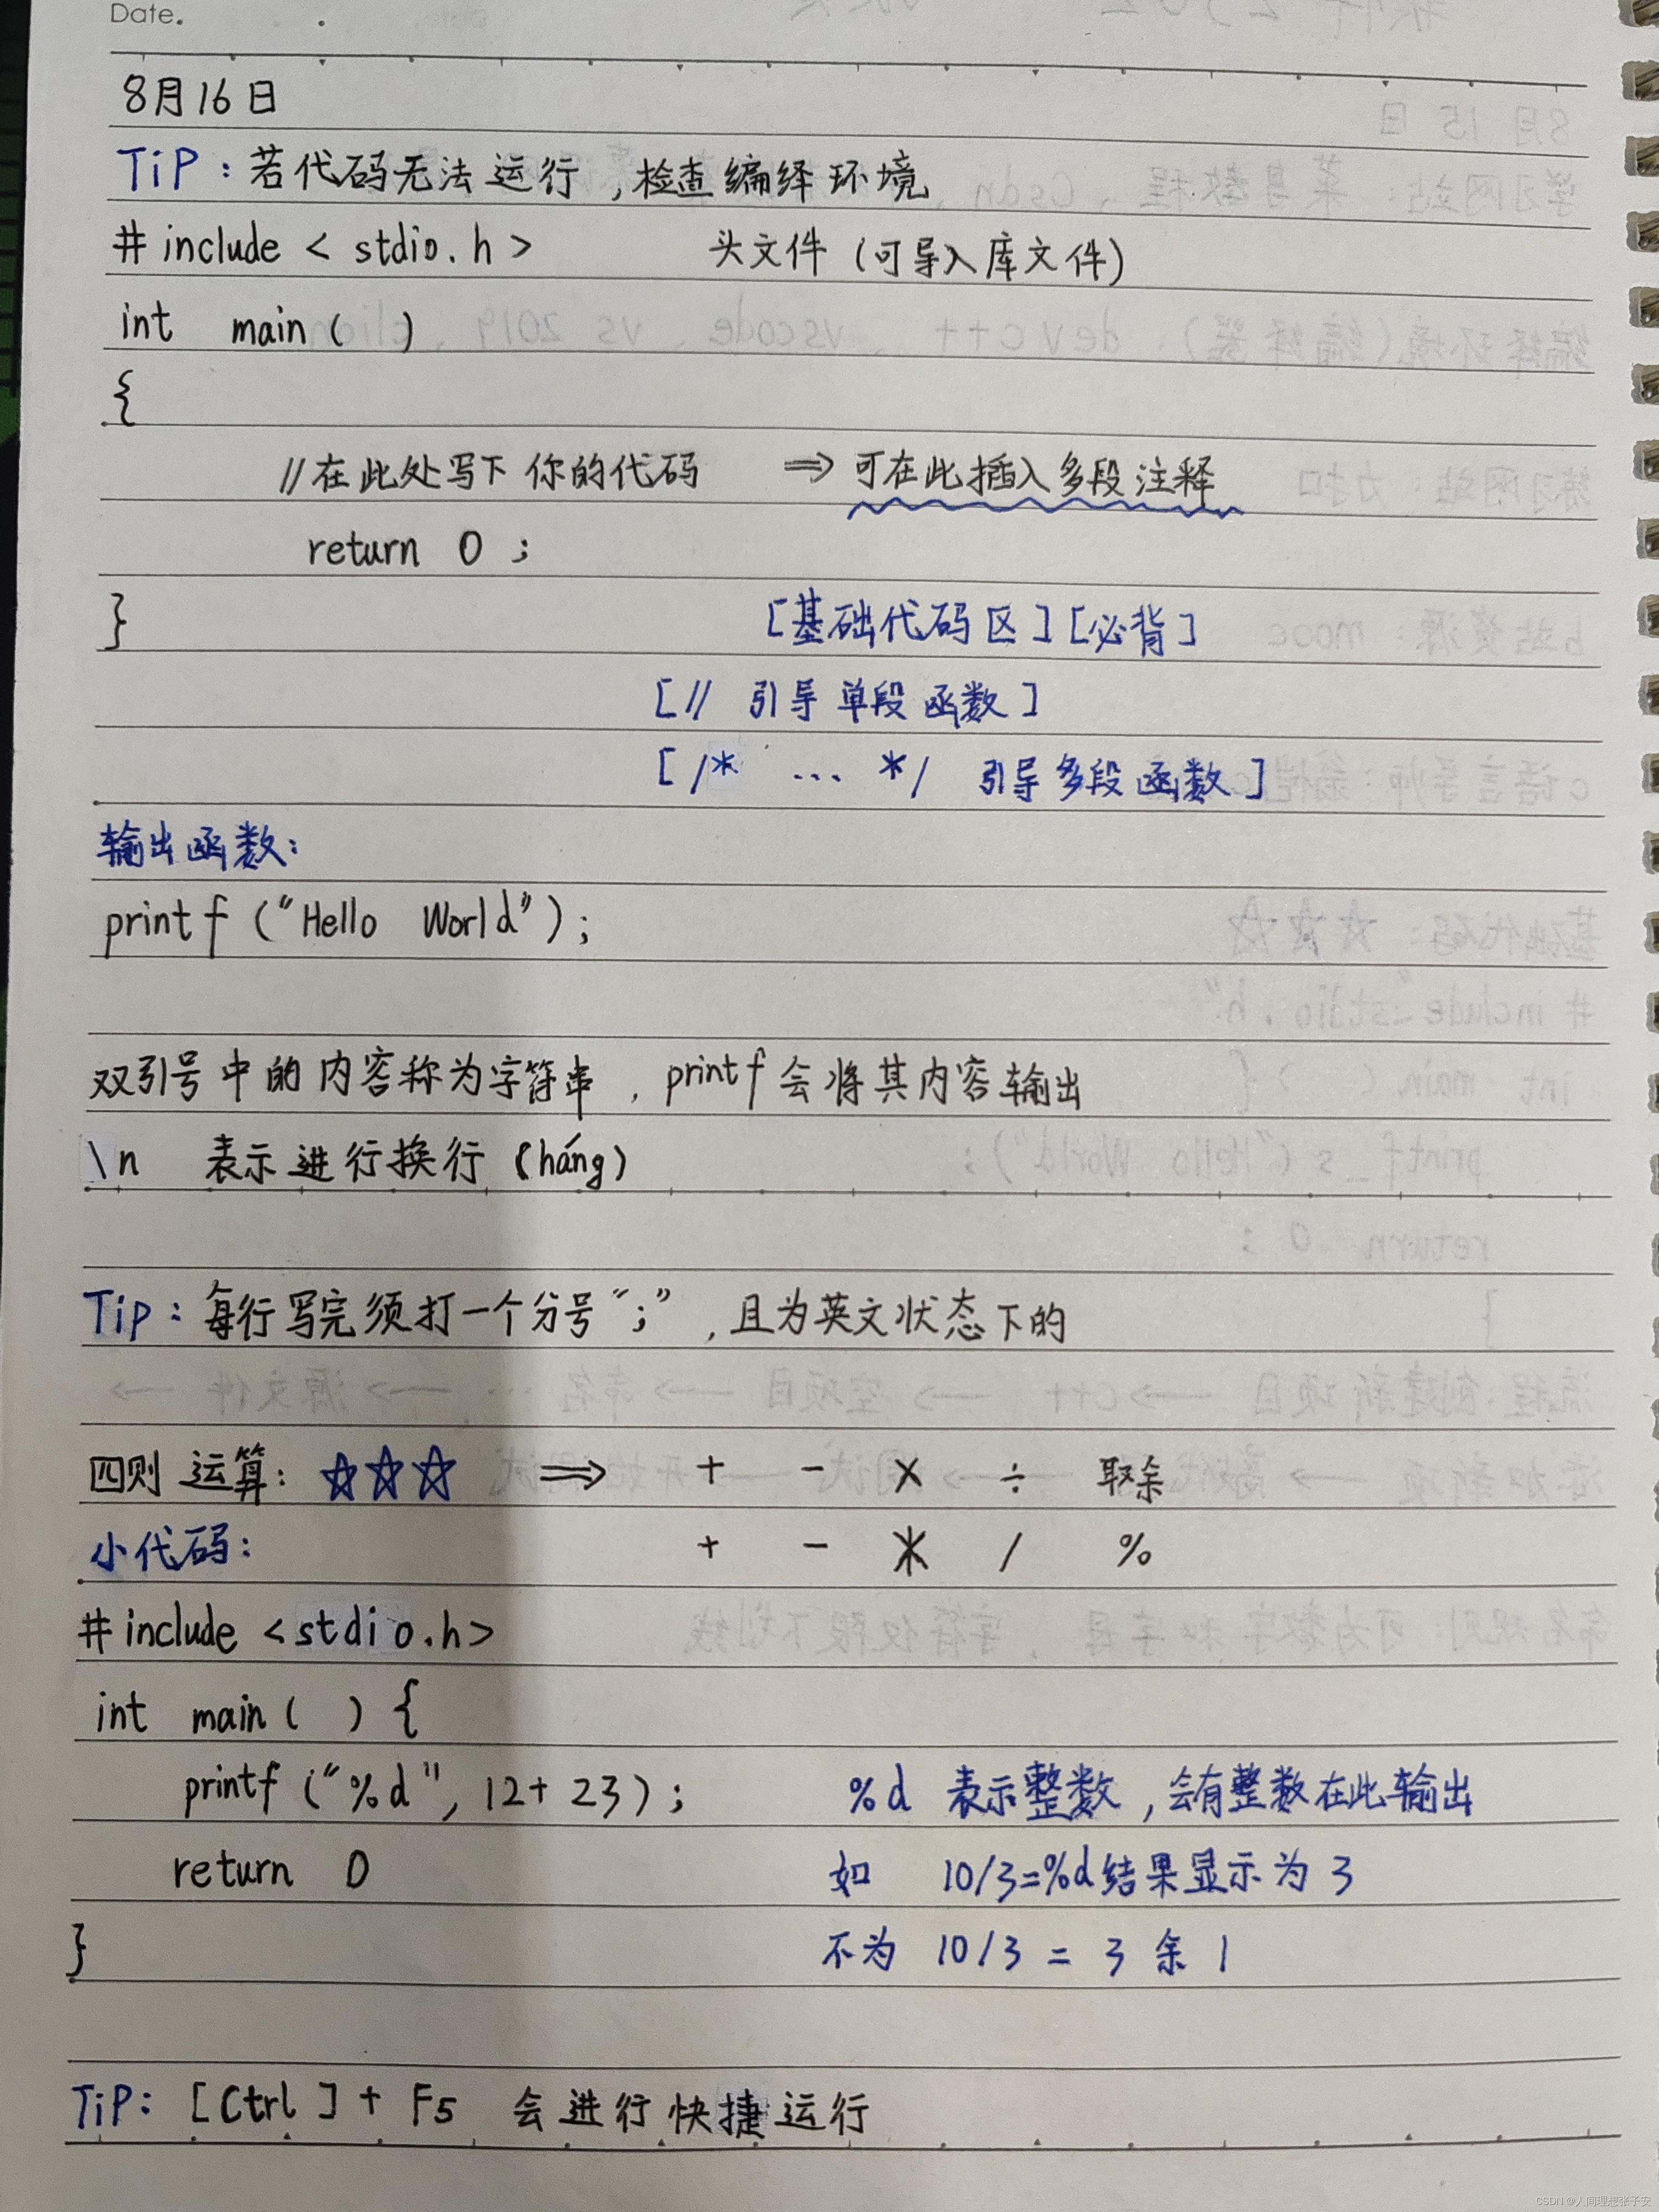 Date.
8月16日
TiP：若代码无法运行，检查编绎环境
# include < stdio.h > 头文件（可导入库文件）
int main ( )
{
//在此处写下你的代码 ⇒ 可在此插入多段注释
return 0 ;
}
[基础代码区][必背]
[// 引导单段函数]
[/* ... */ 引导多段函数]
输出函数：
printf ("Hello World");
双引号中的内容称为字符串，printf会将其内容输出
\n 表示进行换行（háng）
Tip：每行写完须打一个分号“;”，且为英文状态下的
四则运算：☆☆☆ ⇒ + - × ÷ 取余
小代码： + - * / %
# include <stdio.h>
int main ( ) {
printf ("%d", 12+23); %d 表示整数，会有整数在此输出
return 0 如 10/3=%d结果显示为 3
} 不为 10/3 = 3 余 1
TiP: [Ctrl] + F5 会进行快捷运行
CSDN @人间理想张子安